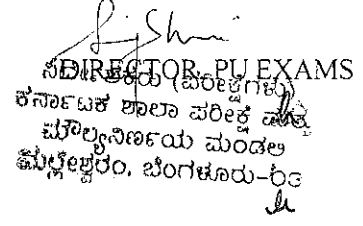 DIRECTOR, PU EXAMS
ನಿರ್ದೇಶಕರು (ಪರೀಕ್ಷೆಗಳು)
ಕರ್ನಾಟಕ ಶಾಲಾ ಪರೀಕ್ಷೆ ಮತ್ತು
ಮೌಲ್ಯನಿರ್ಣಯ ಮಂಡಲಿ
ಮಲ್ಲೇಶ್ವರಂ, ಬೆಂಗಳೂರು-೦೩